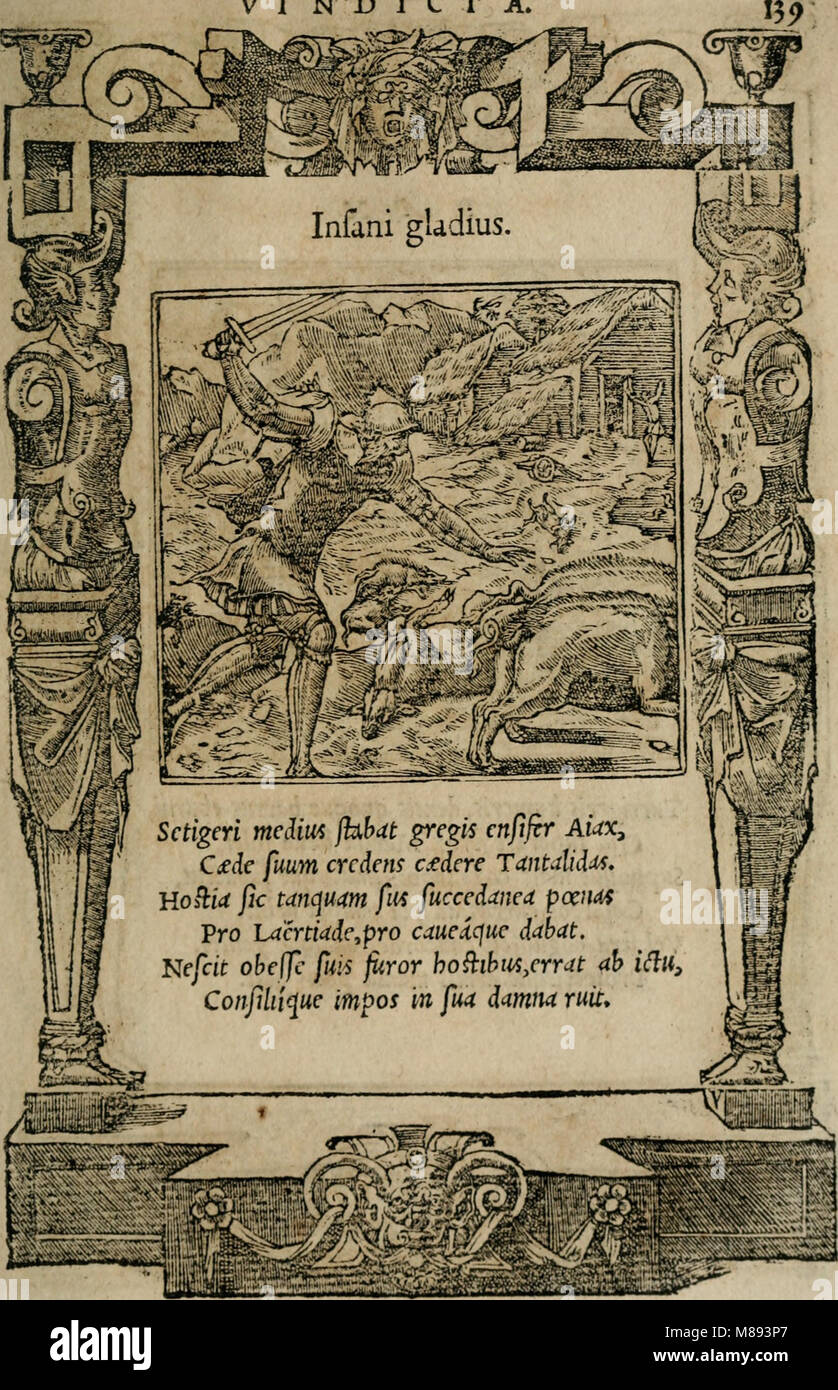 VINDICTA. 139
Inſani gladius.
Setigeri medius ſtabat gregis enſifer Aiax,
Cæde ſuum credens cædere Tantalidas.
Hoſtia ſic tanquam ſus ſuccedanea pœnas
Pro Laërtiade, pro caueáque dabat.
Neſcit obeſſe ſuis furor hoſtibus, errat ab ictu,
Conſilíique impos in ſua damna ruit.
alamy
a
alamy
a
a
alamy
a
alamy stock photo
M893P7
www.alamy.com